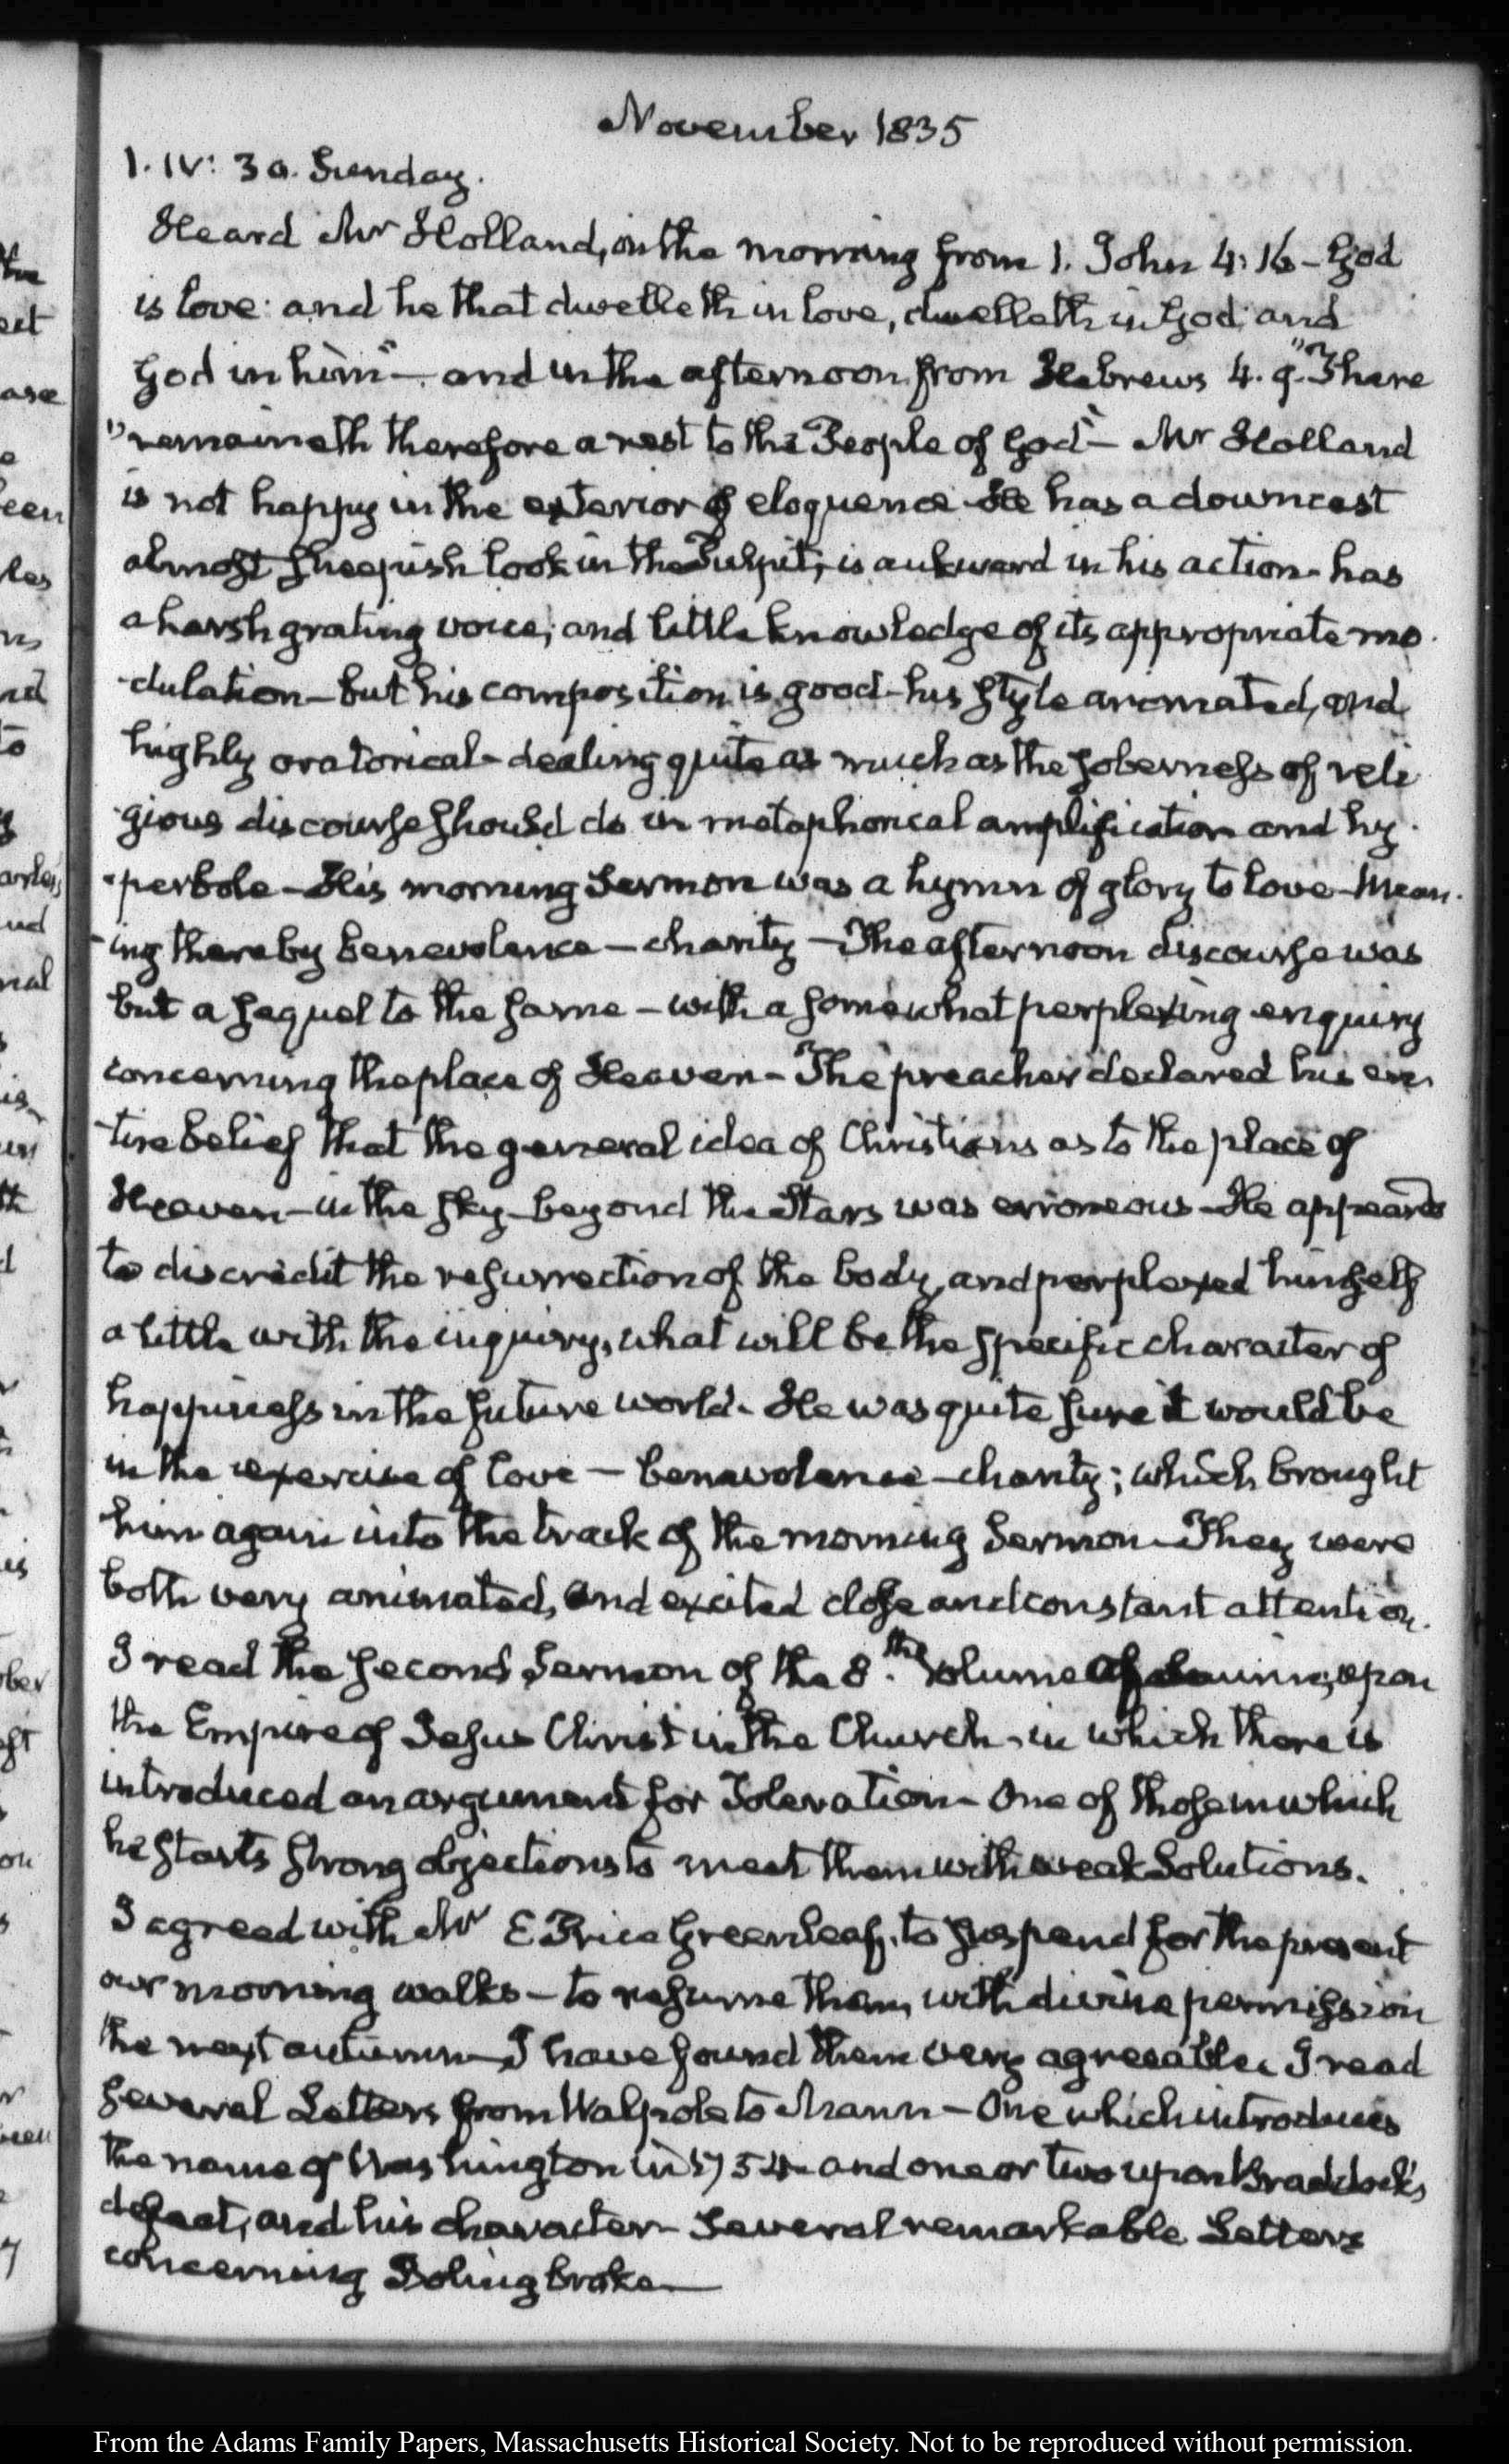 November 1835
1. IV: 30. Sunday.
Heard Mr Holland, in the morning from 1. John 4:16 – God
is love: and he that dwelleth in love, dwelleth in God; and
God in him" – and in the afternoon from Hebrews 4. 9. "There
"remaineth therefore a rest to the People of God" – Mr Holland
is not happy in the exterior of eloquence – He has a downcast
almost sheepish look in the Pulpit; is aukward in his action – has
a harsh grating voice; and little knowledge of its appropriate mo-
-dulation – but his composition is good – his style animated, and
highly oratorical – dealing quite as much as the soberness of reli-
-gious discourse should do in metaphorical amplification and hy-
-perbole – His morning Sermon was a hymn of glory to love – Mean-
-ing thereby benevolence – charity – The afternoon discourse was
but a sequel to the same – with a somewhat perplexing enquiry
concerning the place of Heaven – The preacher declared his en-
-tire belief that the general idea of Christians as to the place of
Heaven – in the sky – beyond the Stars was erroneous – He appeared
to discredit the resurrection of the body, and perplexed himself
a little with the inquiry, what will be the specific character of
happiness in the future world. He was quite sure it would be
in the exercise of love – benevolence – charity; which brought
him again into the track of the morning Sermon – They were
both very animated, and excited close and constant attention.
I read the second Sermon of the 8.th volume of Saurin, upon
the Empire of Jesus Christ in the Church, in which there is
introduced an argument for Toleration – One of those in which
he starts strong objections to meet them with weak Solutions.
I agreed with Mr E Price Greenleaf, to suspend for the present
our morning walks – to resume them, with divine permission
the next autumn – I have found them very agreeable. I read
several Letters from Walpole to Mann – One which introduces
the name of Washington in 1754 – and one or two upon Braddock's
defeat, and his character – Several remarkable Letters
concerning Bolingbroke –
From the Adams Family Papers, Massachusetts Historical Society. Not to be reproduced without permission.